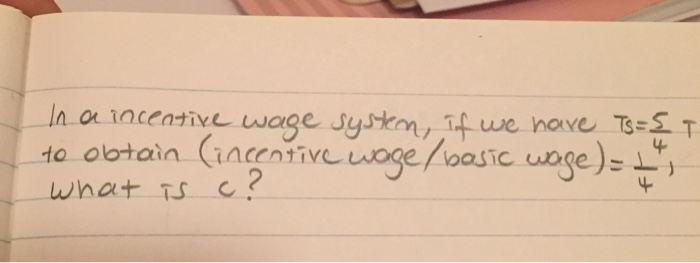 In a incentive wage system, if we have Ts=5/4 T
to obtain (incentive wage/basic wage)=1/4,
what is c?